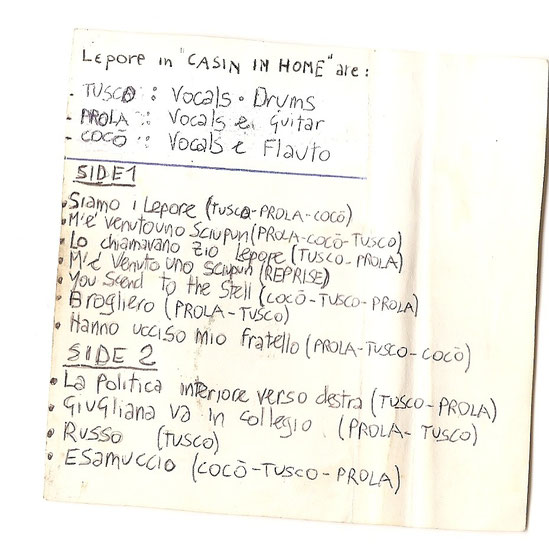 Lepore in "CASIN IN HOME" are:
- TUSCO : Vocals • Drums
- PROLA : Vocals e Guitar
- COCÒ : Vocals e Flauto
SIDE 1
• Siamo i Lepore (TUSCO-PROLA-COCÒ)
• M'è venuto uno sciupun (PROLA-COCÒ-TUSCO)
• Lo chiamavano zio Lepore (TUSCO-PROLA)
• M'è venuto uno sciupun (REPRISE)
• You Send to the Stell (COCÒ-TUSCO-PROLA)
• Brogliero (PROLA-TUSCO)
• Hanno ucciso mio fratello (PROLA-TUSCO-COCÒ)
SIDE 2
• La politica interiore verso destra (TUSCO-PROLA)
• Giugliana va in collegio (PROLA-TUSCO)
• Russo (TUSCO)
• Esamuccio (COCÒ-TUSCO-PROLA)